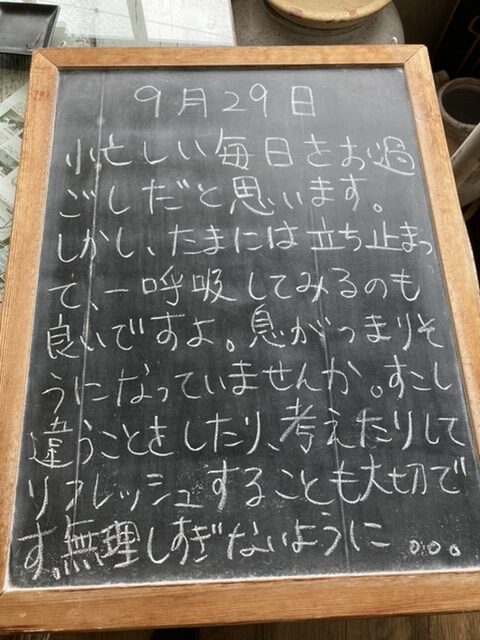 9月29日
忙しい毎日をお過
ごしだと思います。
しかし、たまには立ち止まっ
て、一呼吸してみるのも
良いですよ。息がつまりそ
うになっていませんか。すこし
違うことをしたり、考えたりして
リフレッシュすることも大切で
す。無理しすぎないように。。。